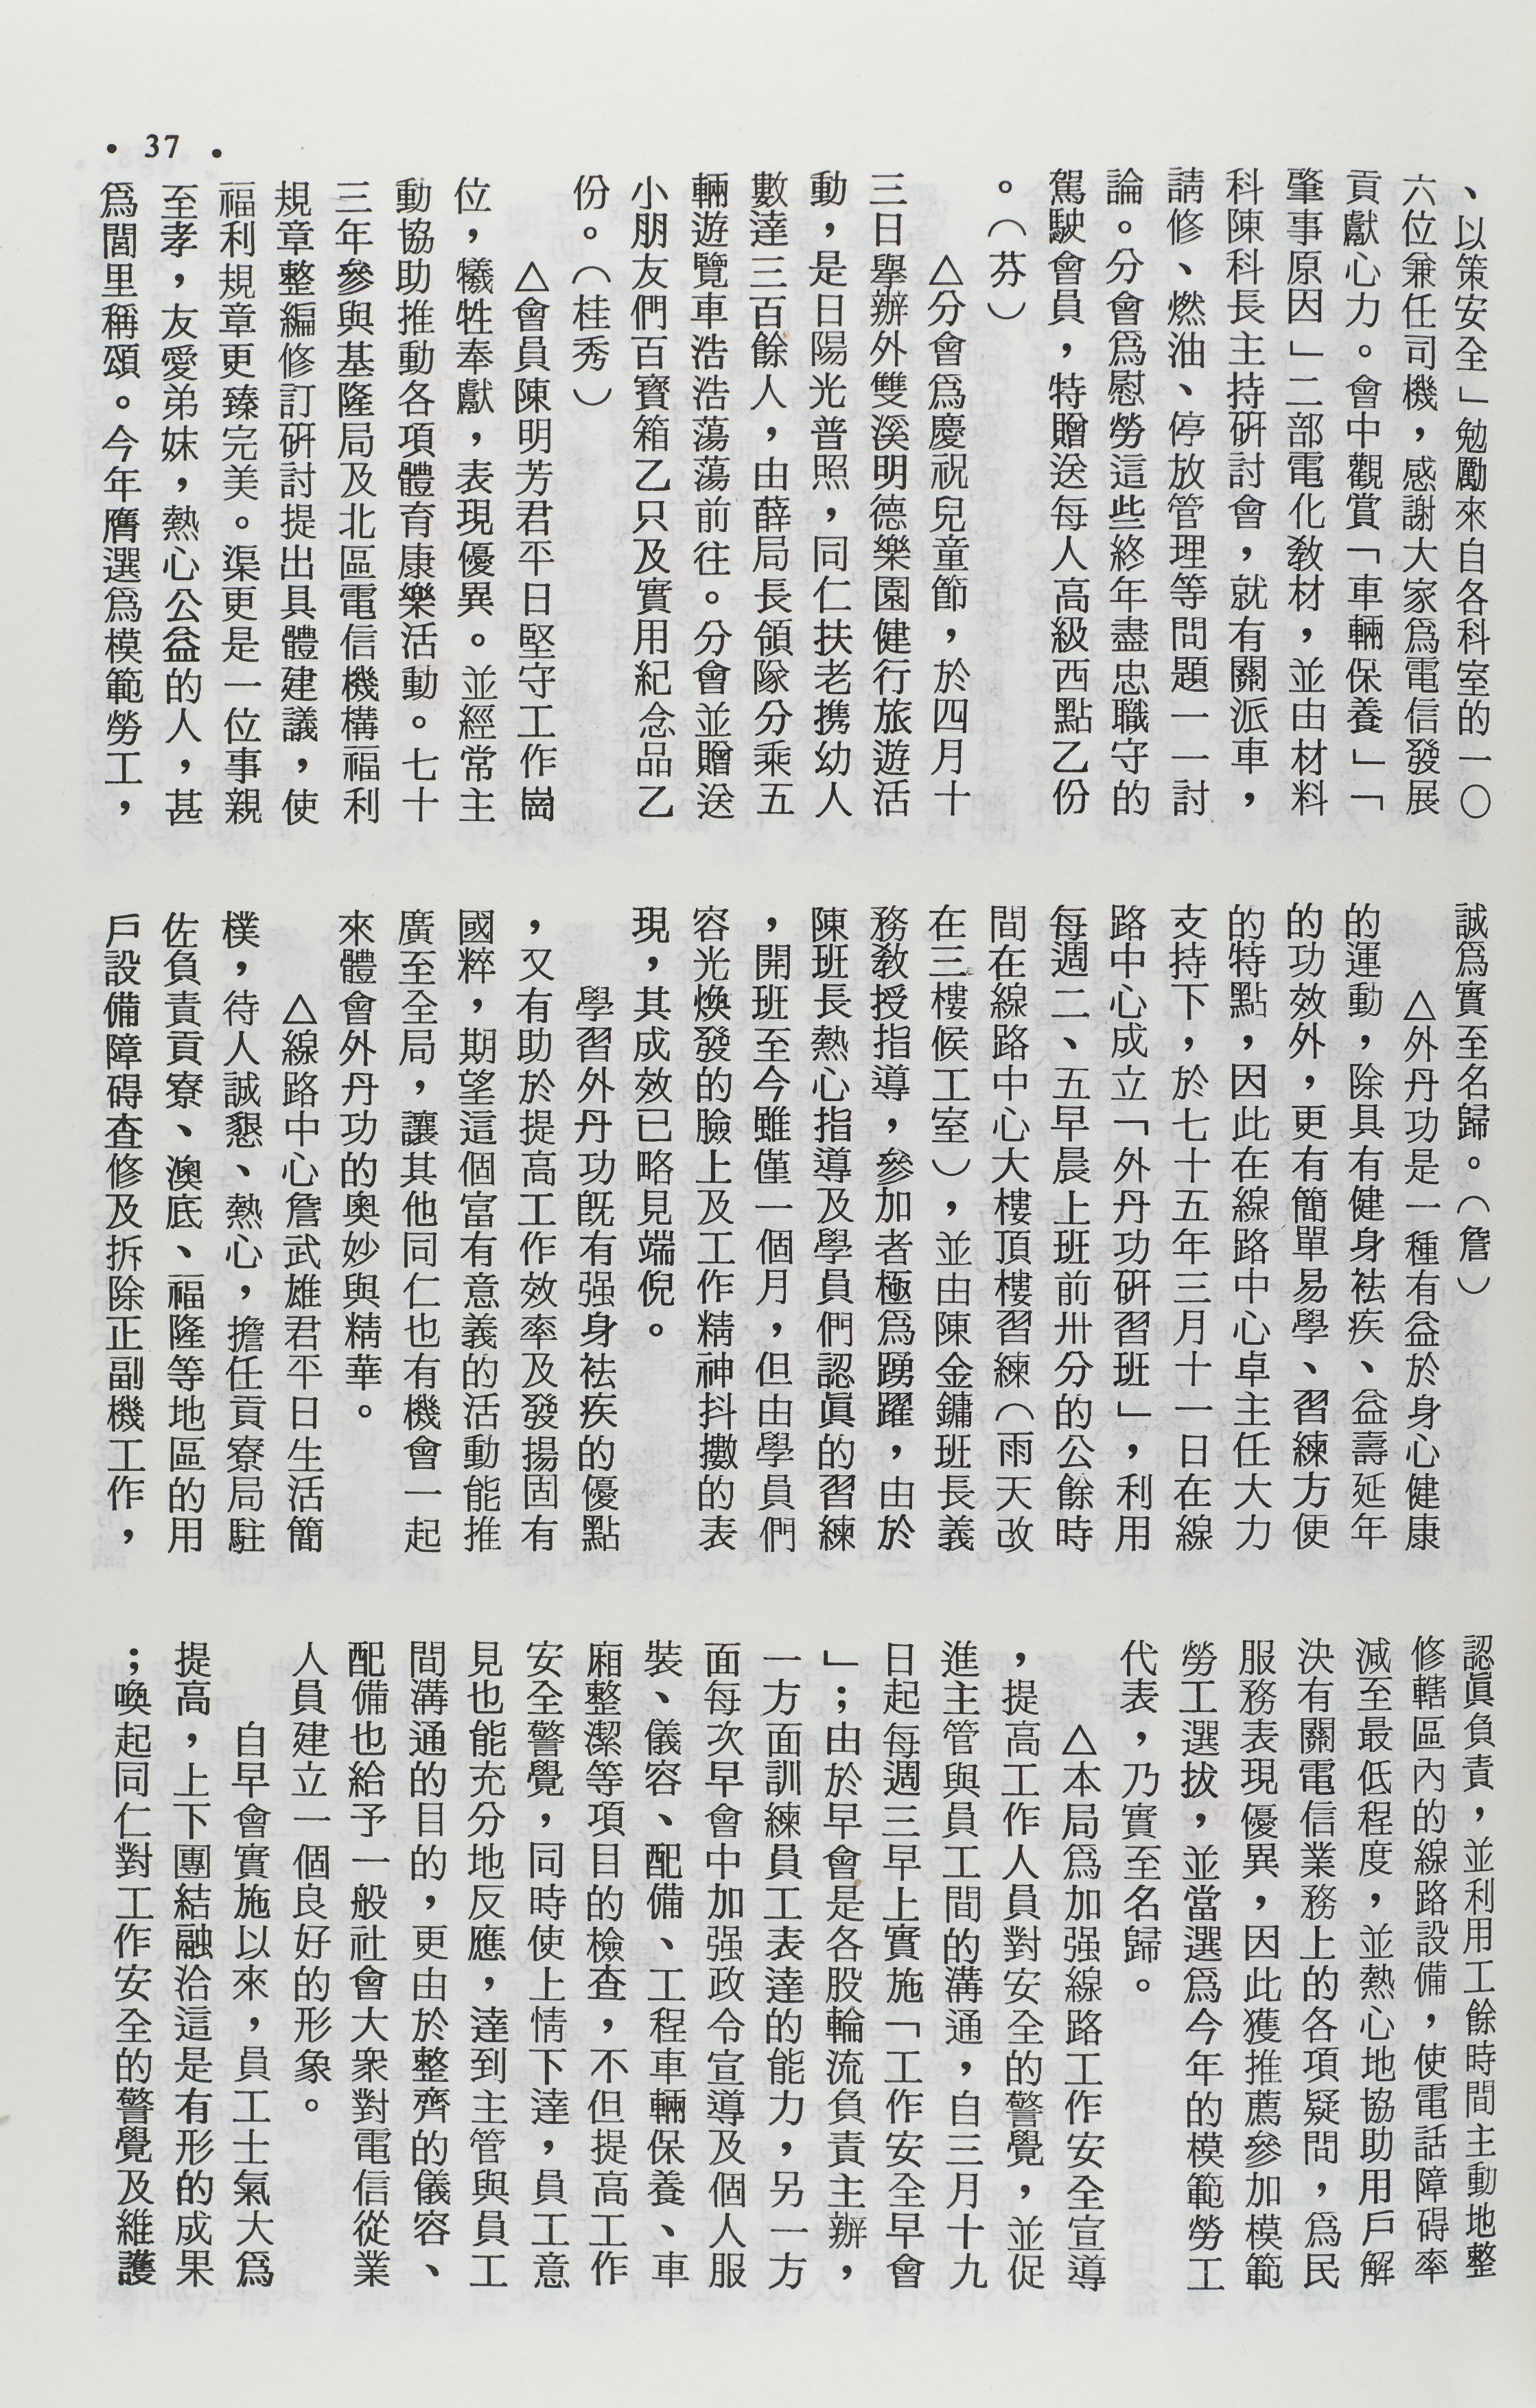 、以策安全」勉勵來自各科室的一○
六位兼任司機，感謝大家爲電信發展
貢獻心力。會中觀賞「車輛保養」「
肇事原因」二部電化教材，並由材料
科陳科長主持研討會，就有關派車，
請修、燃油、停放管理等問題一一討
論。分會爲慰勞這些終年盡忠職守的
駕駛會員，特贈送每人高級西點乙份
。（芬）
△分會爲慶祝兒童節，於四月十
三日舉辦外雙溪明德樂園健行旅遊活
動，是日陽光普照，同仁扶老携幼人
數達三百餘人，由薛局長領隊分乘五
輛遊覽車浩浩蕩蕩前往。分會並贈送
小朋友們百寶箱乙只及實用紀念品乙
份。（桂秀）
△會員陳明芳君平日堅守工作崗
位，犧牲奉獻，表現優異。並經常主
動協助推動各項體育康樂活動。七十
三年參與基隆局及北區電信機構福利
規章整編修訂研討提出具體建議，使
福利規章更臻完美。渠更是一位事親
至孝，友愛弟妹，熱心公益的人，甚
爲閭里稱頌。今年膺選爲模範勞工，
誠爲實至名歸。（詹）
△外丹功是一種有益於身心健康
的運動，除具有健身袪疾、益壽延年
的功效外，更有簡單易學、習練方便
的特點，因此在線路中心卓主任大力
支持下，於七十五年三月十一日在線
路中心成立「外丹功研習班」，利用
每週二、五早晨上班前卅分的公餘時
間在線路中心大樓頂樓習練（雨天改
在三樓候工室），並由陳金鏞班長義
務教授指導，參加者極爲踴躍，由於
陳班長熱心指導及學員們認眞的習練
，開班至今雖僅一個月，但由學員們
容光煥發的臉上及工作精神抖擻的表
現，其成效已略見端倪。
學習外丹功旣有强身袪疾的優點
，又有助於提高工作效率及發揚固有
國粹，期望這個富有意義的活動能推
廣至全局，讓其他同仁也有機會一起
來體會外丹功的奧妙與精華。
△線路中心詹武雄君平日生活簡
樸，待人誠懇、熱心，擔任貢寮局駐
佐負責貢寮、澳底、福隆等地區的用
戶設備障碍查修及拆除正副機工作，
認眞負責，並利用工餘時間主動地整
修轄區內的線路設備，使電話障碍率
減至最低程度，並熱心地協助用戶解
決有關電信業務上的各項疑問，爲民
服務表現優異，因此獲推薦參加模範
勞工選拔，並當選爲今年的模範勞工
代表，乃實至名歸。
△本局爲加强線路工作安全宣導
，提高工作人員對安全的警覺，並促
進主管與員工間的溝通，自三月十九
日起每週三早上實施「工作安全早會
」；由於早會是各股輪流負責主辦，
一方面訓練員工表達的能力，另一方
面每次早會中加强政令宣導及個人服
裝、儀容、配備、工程車輛保養、車
廂整潔等項目的檢查，不但提高工作
安全警覺，同時使上情下達，員工意
見也能充分地反應，達到主管與員工
間溝通的目的，更由於整齊的儀容、
配備也給予一般社會大衆對電信從業
人員建立一個良好的形象。
自早會實施以來，員工士氣大爲
提高，上下團結融洽這是有形的成果
；喚起同仁對工作安全的警覺及維護
• 37 •